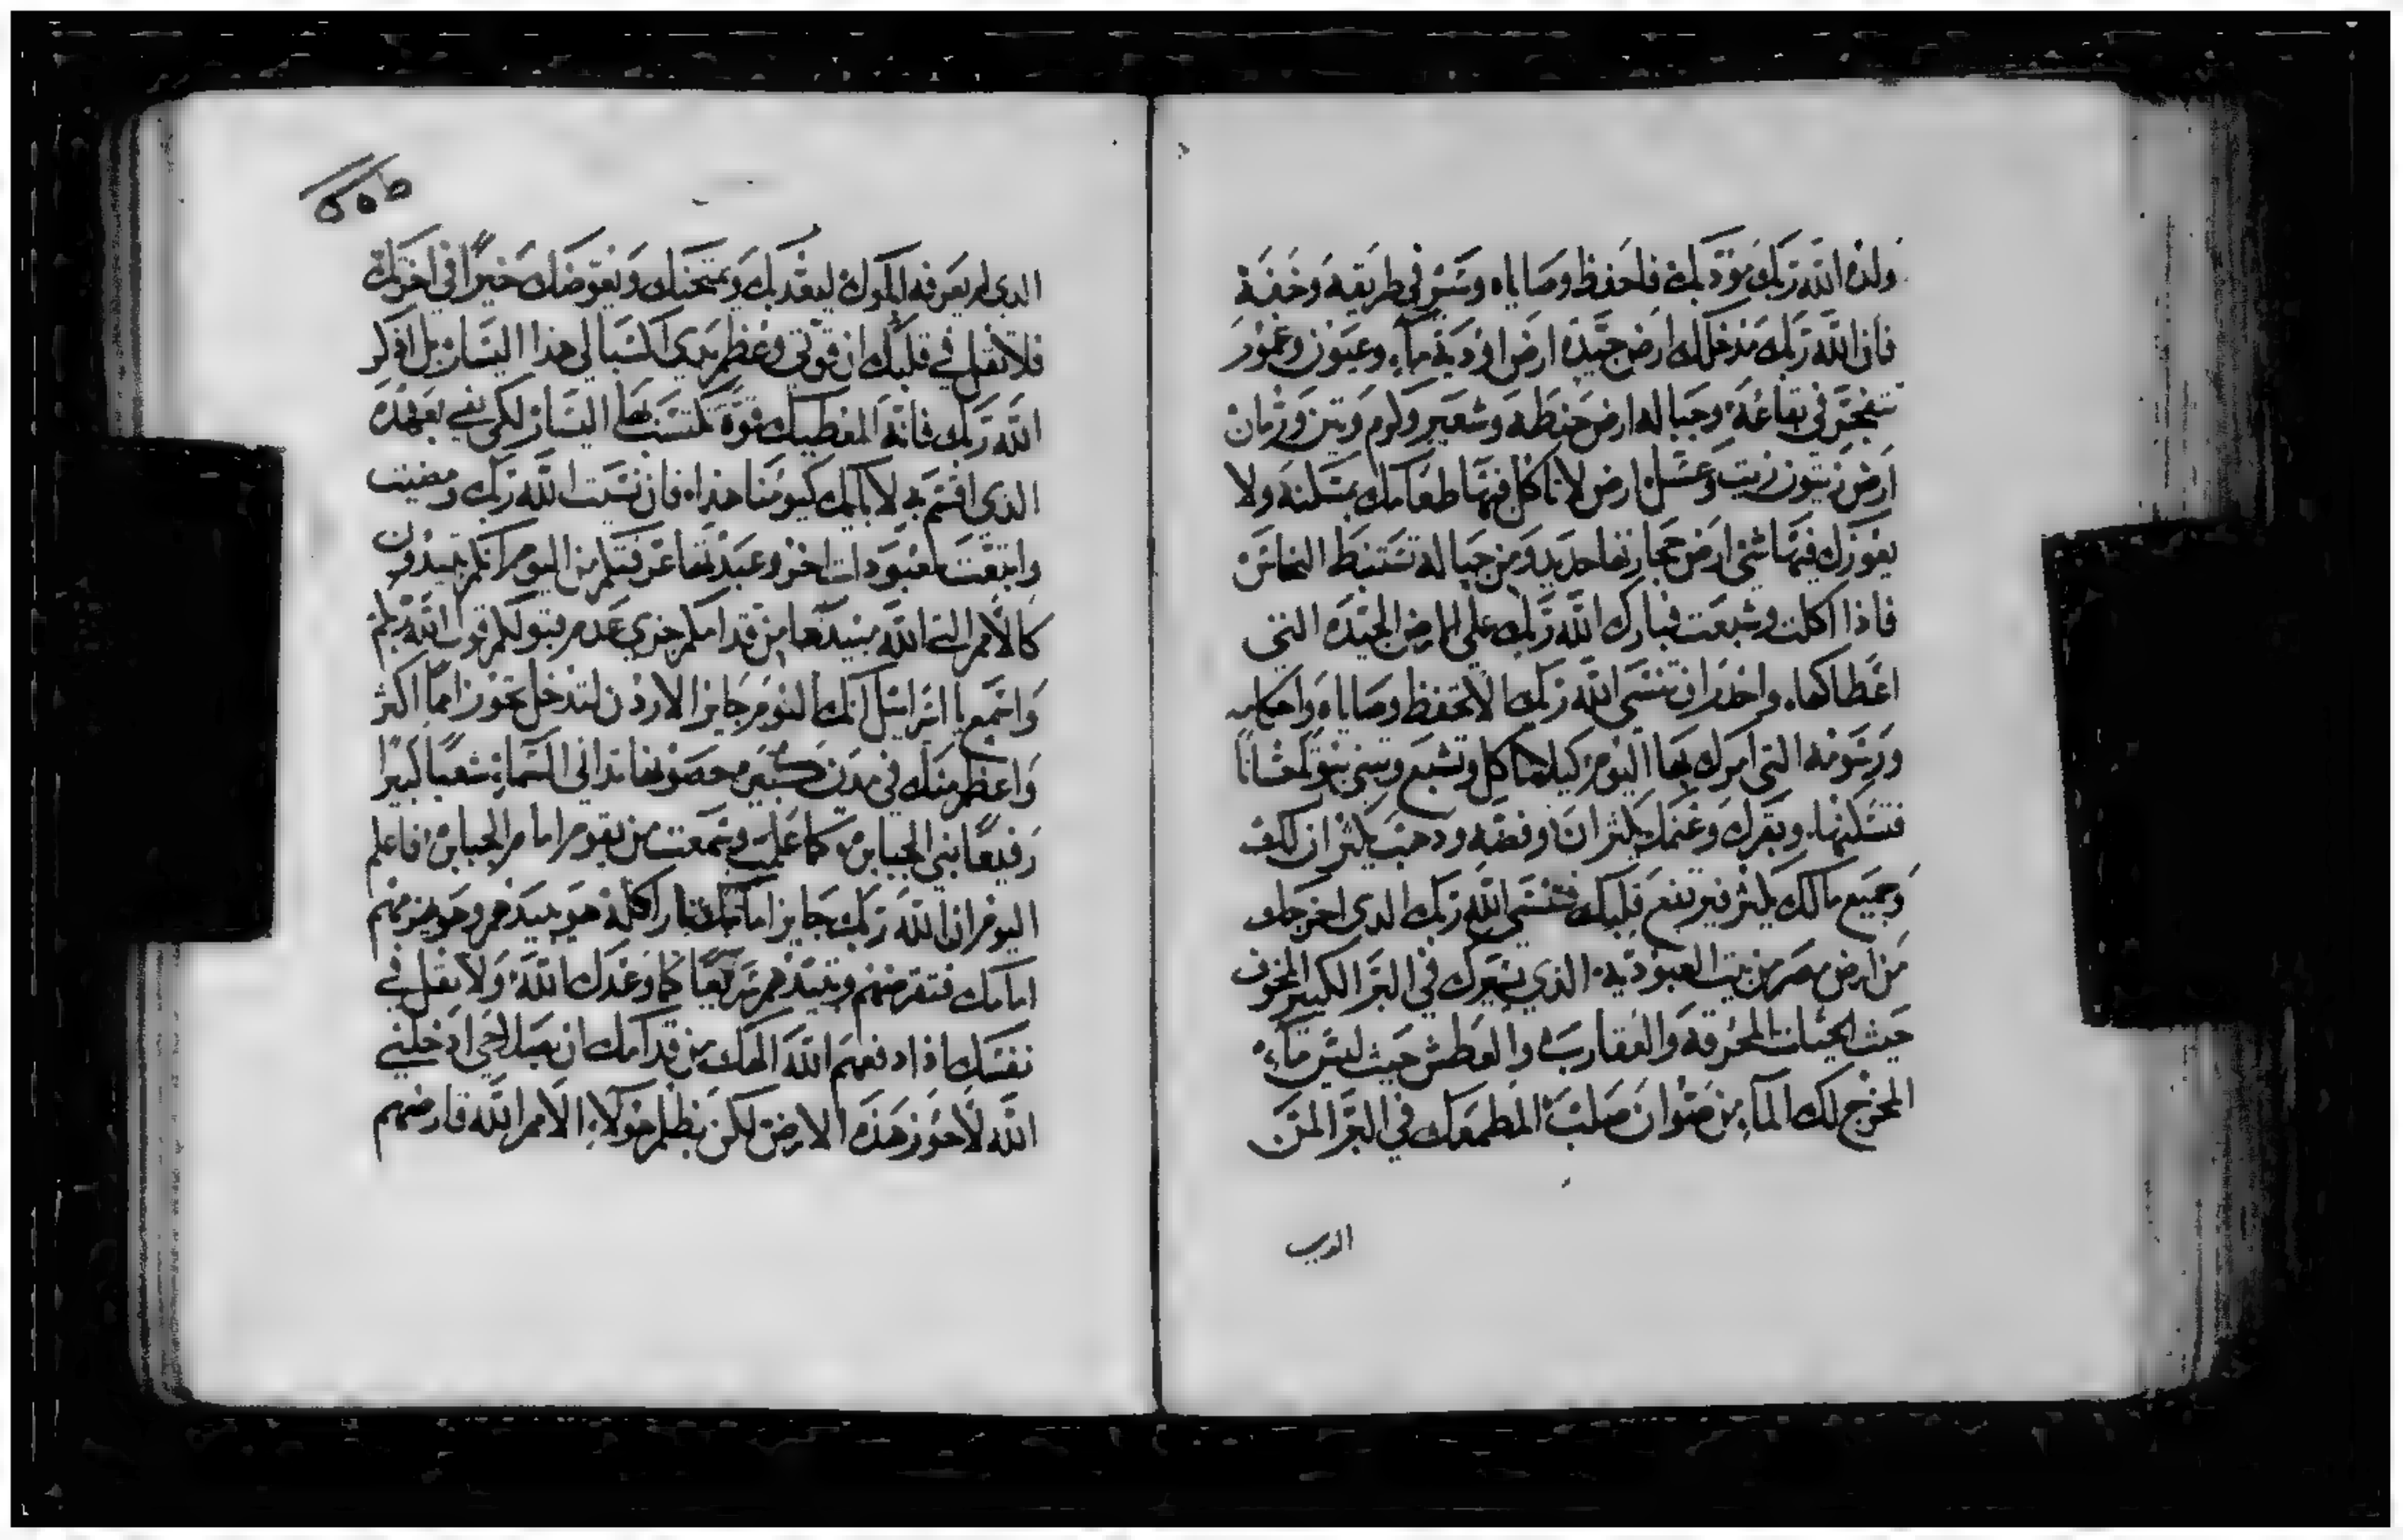 ولده الله ربك مودبك فاحفظ وصاياه وسر في طريقه وخفه
فان الله ربك مدخلك ارض جيدة ارض اودية ماء وعيون وغمور
تنفجر في بقاعه وجباله ارض حنطه وشعير وكروم وتين ورمان
ارض زيتون زيت وعسل ارض لا تاكل فيها طعامك بمسكنه ولا
يعوزك فيها شي ارض حجارتها حديد ومن جباله تستنبط النحاس
فاذا اكلت وشبعت فبارك الله ربك على الارض الجيده التي
اعطاكها واحذر ان تنسى الله ربك لا تحفظ وصاياه واحكامه
ورسومه التي امرك بها اليوم كيلا تاكل وتشبع وتبني بيوت حسانا
فتسكنها وبقرك وغنمك يكثران وفضه ودهب يكثران لك
وجميع مالك يكثر فيرتفع قلبك فتنسى الله ربك الدي اخرجك
من ارض مصر من بيت العبوديه الذي سيرك في البر الكبير المخوف
حيث الحيات المحرقه والعقارب والعطش حيث ليس ماء
المخرج لك الماء من صوان صلب المطعمك في البر المن
الدي
٥٥٥
الدي لم يعرفه ابايك ليعذبك ويمتحنك ويعوضك خيرا في اخرتك
فلا تقل في قلبك ان قوتي وعظم يدي اكسبا لي هذا اليسار بل اذكر
الله ربك فانه المعطيك قوة تكتسب بها اليسار لكي يفي بعهده
الذي اقسم به لابايك كيومنا هذا فان نسيت الله ربك ومضيت
واتبعت معبودات اخر وعبدتها عرفتكم من اليوم انكم تبيدون
كالامم التي الله مبيدها من قدامكم جزي عدم قبولكم قول الله ربكم
واسمع يا اسراييل انك اليوم جايز الاردن لتدخل تحوز امما اكثر
واعظم منك في مدن كبيره محصونها تداني السماء شعبا كبيرا
رفيعا بني الجبابره كما علمت وسمعت من يقوم امام الجبابره فاعلم
اليوم ان الله ربك جايز امامك نار اكلة هو يبيدهم وهو يهزمهم
امامك فتقرضهم وتبيدهم سريعا كما وعدك الله ولا تقل في
نفسك اذا دفعهم الله الهك من قدامك ان بصلاحي ادخلني
الله لاحوز هذه الارض لكن بظلم هولاء الامم الله قارضهم